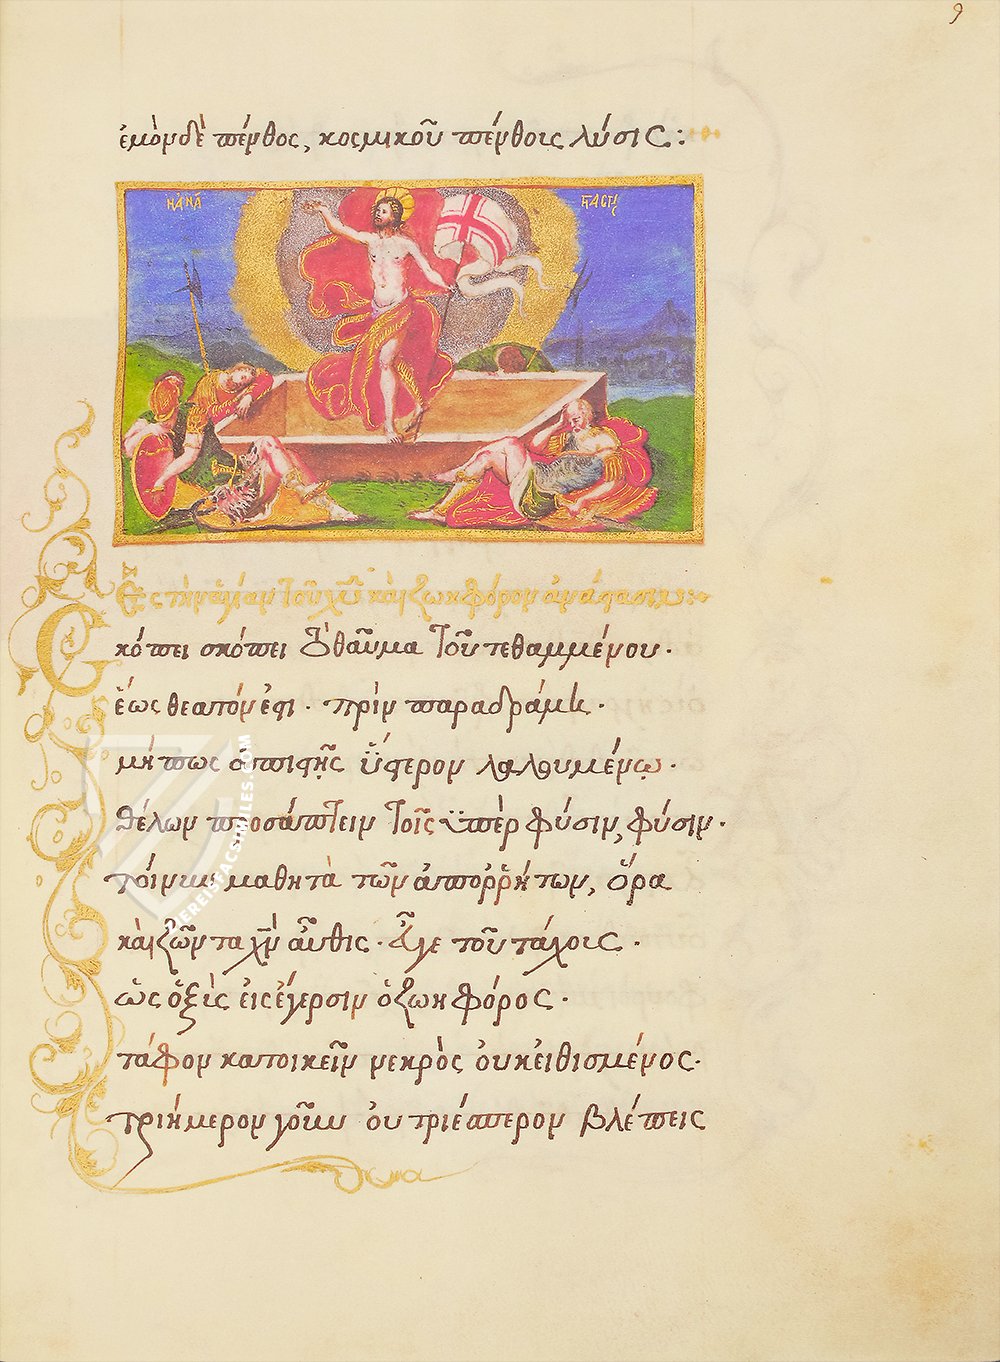 9
ἐμὸν δὲ πένθος, κοσμικοῦ πένθοις λύσις :
Η ΑΝΑ ϹΤΑϹΙϹ
Εἰς τὴν ἁγίαν τοῦ χῦ καὶ ζωηφόρον ἀνάστασιν :~
Σκόπει σκόπει τὸ θαῦμα τοῦ τεθαμμένου ·
ἕως θεατόν ἐστι · πρὶν παραδράμῃ ·
μήπως ἀπιστῇς ὕστερον λαλουμένῳ ·
θέλων προσάπτειν τοῖς ὑπὲρ φύσιν, φύσιν ·
τοίνυν μαθητὰ τῶν ἀπορρήτων, ὅρα
καὶ ζῶντα χν αὖθις · ἆγε τοῦ τάχοις ·
ὡς ὀξὺς εἰς ἔγερσιν ὁ ζωηφόρος ·
τάφον κατοικεῖν νεκρὸς οὐκ εἰθισμένος ·
τριήμερον γοῦν οὐ τριέσπερον βλέπεις
MEREISFACSIMILES.COM